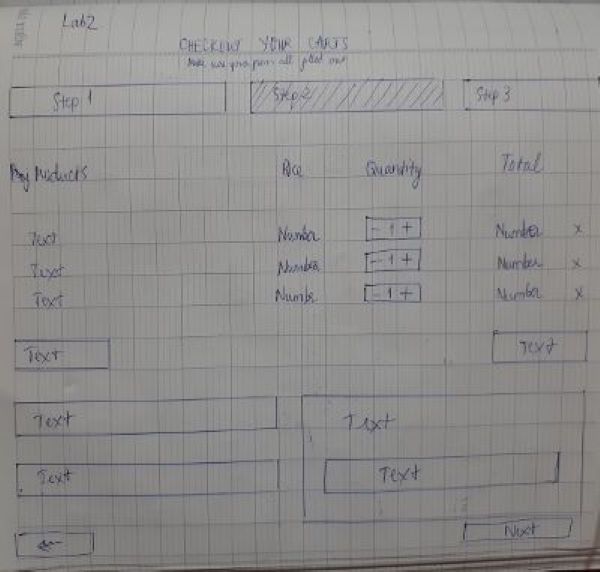 Lab2
CHECKOUT YOUR CARTS
all filled out
Step 1 Step 2 Step 3
Products Price Quantity Total
Text Number - 1 + Number x
Text Number - 1 + Number x
Text Numbr - 1 + Number x
Text Text
Text Text
Text Text
← Next